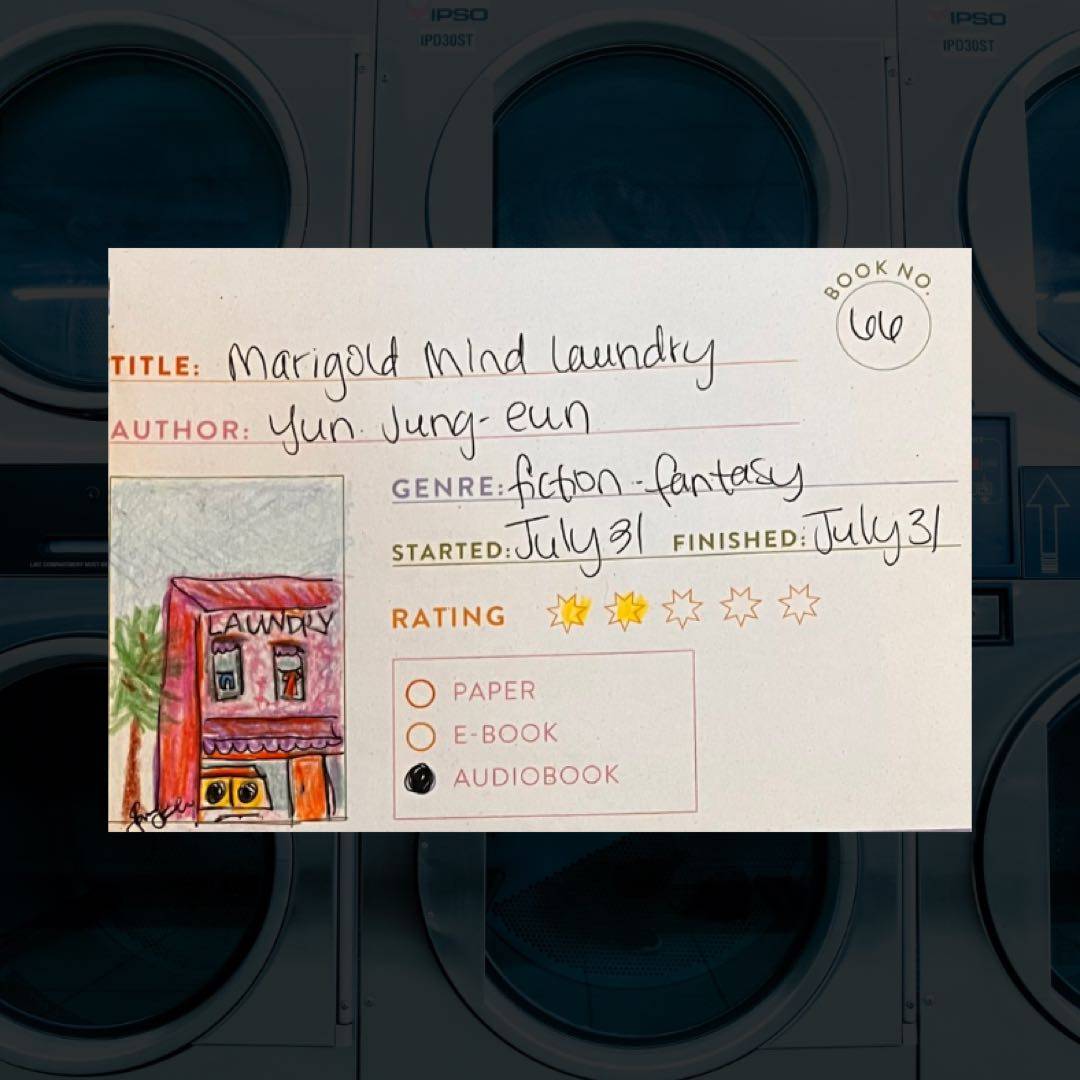 IPSO
IPD30ST
IPSO
IPD30ST
BOOK NO.
66
TITLE: Marigold Mind Laundry
AUTHOR: Yun Jung-eun
GENRE: fiction-fantasy
STARTED: July 31 FINISHED: July 31
RATING
LAUNDRY
PAPER
E-BOOK
AUDIOBOOK